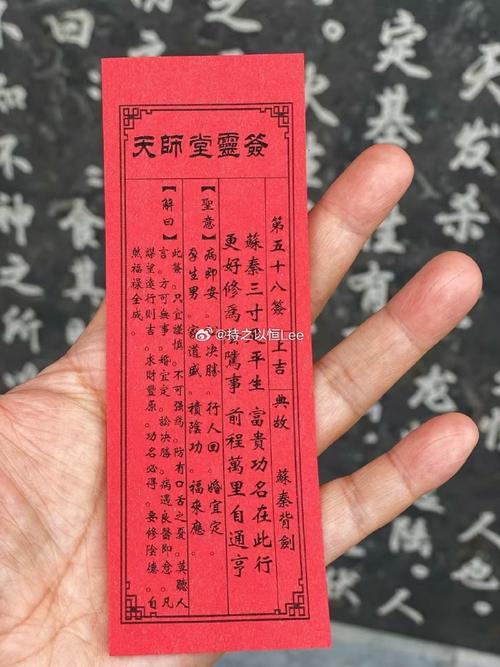 天師堂靈簽
第五十八簽 上吉 典故 蘇秦背劍
蘇秦三寸平生 富貴功名在此行
更好修為騭事 前程萬里自通亨
【聖意】病即安 決勝 行人回 婚宜定
孕生男 家道盛 積陰功 福來應
【解曰】此簽 只宜謹慎 不可強 防有口舌之憂 莫聽人
言 方可無事 婚宜定 訟決勝 病遇良醫即愈 凡
謀望遠行則吉 求財豐原 功名必得 要修陰德 自
然福祿全成
@持之以恒Lee
定基
天发杀
食其
不神之所